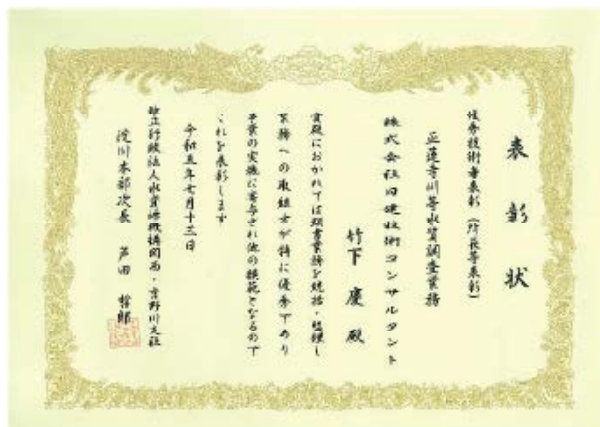 表彰状
優秀技術者表彰（所長等表彰）
正蓮寺川等水質調査業務
株式会社日建技術コンサルタント
竹下慶殿
貴殿におかれては頭書業務を統括・監理し
業務への取組方が特に優秀であり
事業の実施に寄与され他の模範となるので
これを表彰します
令和五年七月十三日
独立行政法人水資源機構関西・吉野川支社
淀川本部次長 芦田 哲郎